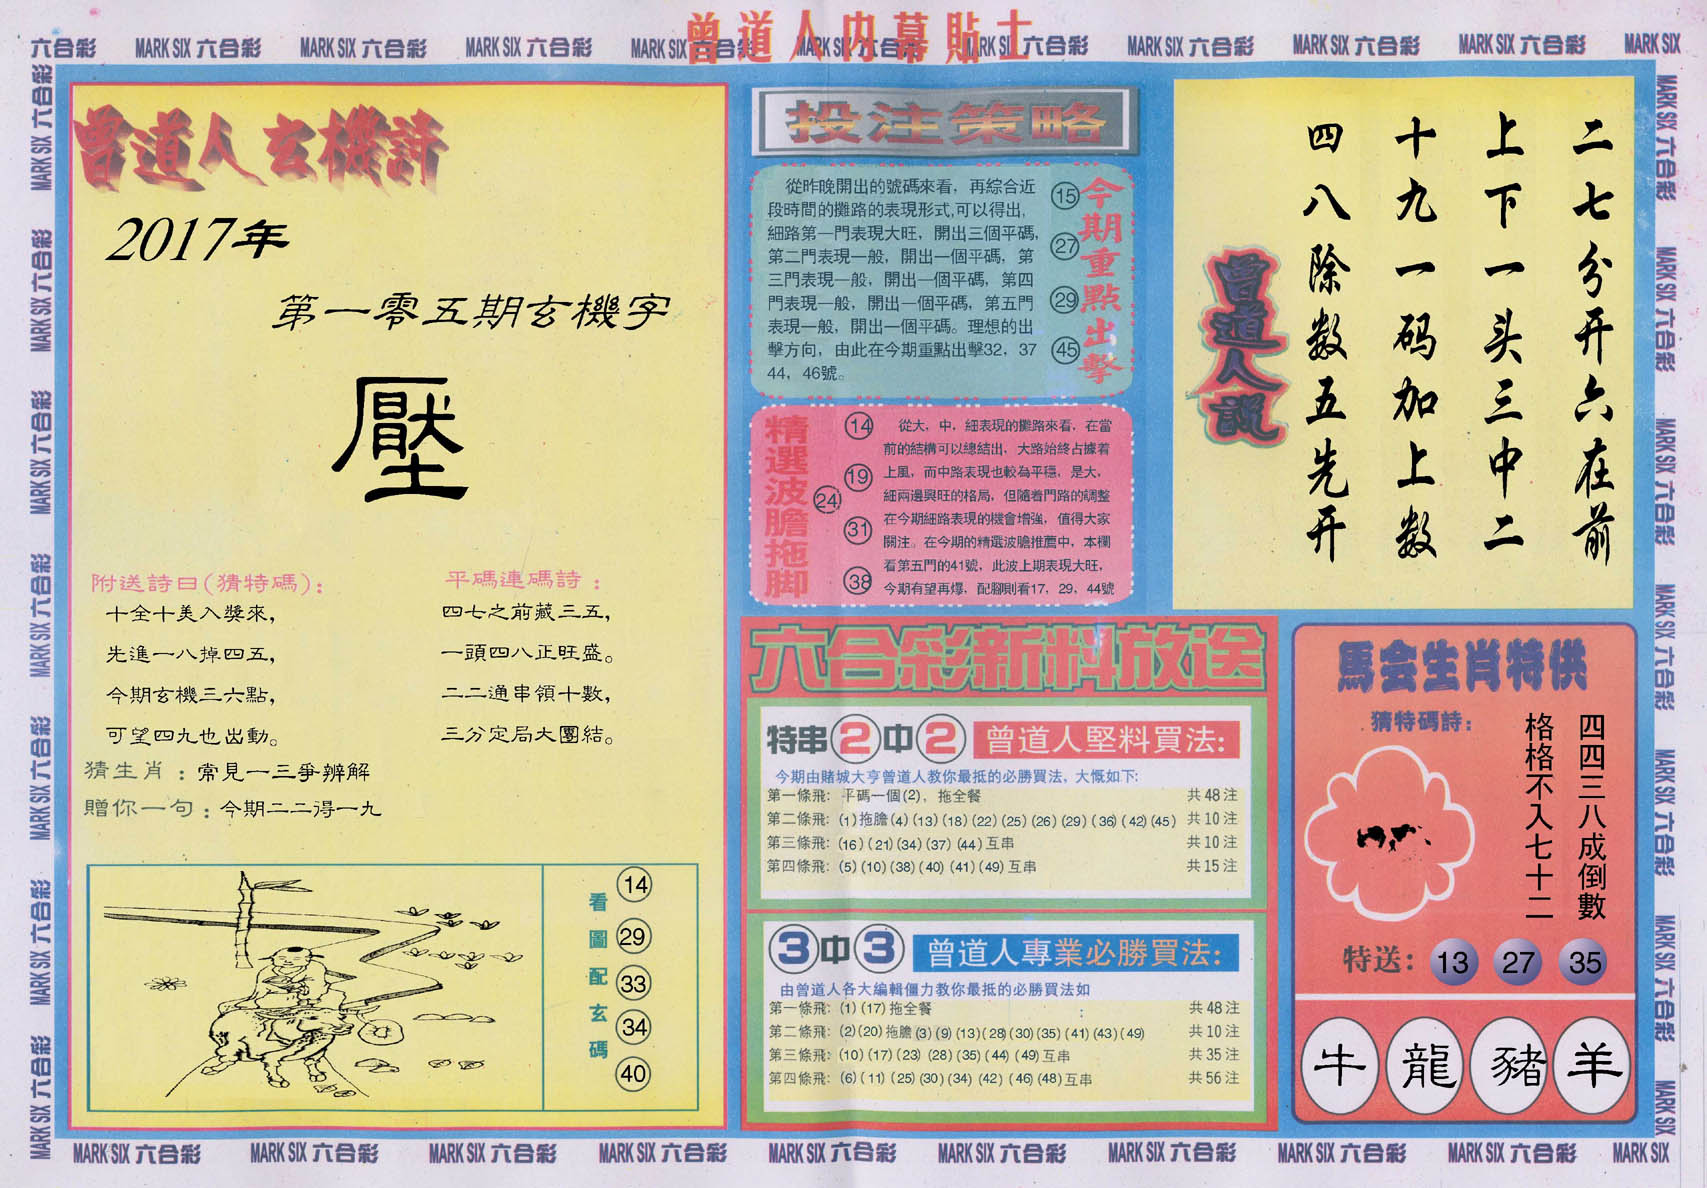 曾道人内幕貼士
六合彩 MARK SIX 六合彩 MARK SIX 六合彩 MARK SIX 六合彩 MARK SIX 六合彩 MARK SIX 六合彩 MARK SIX 六合彩 MARK SIX 六合彩 MARK SIX 六合彩 MARK SIX 六合彩 MARK SIX
曾道人玄機詩
2017年
第一零五期玄機字
壓
附送詩曰(猜特碼):
十全十美入獎來,
先進一八掉四五,
今期玄機三六點,
可望四九也出動。
平碼連碼詩：
四七之前藏三五,
一頭四八正旺盛。
二二通串領十數,
三分定局大團結。
猜生肖：常見一三爭辨解
贈你一句：今期二二得一九
看圖配玄碼
14
29
33
34
40
投注策略
從昨晚開出的號碼來看，再綜合近
段時間的攤路的表現形式,可以得出,
細路第一門表現大旺，開出三個平碼,
第二門表現一般，開出一個平碼，第
三門表現一般，開出一個平碼，第四
門表現一般，開出一個平碼，第五門
表現一般，開出一個平碼。理想的出
擊方向，由此在今期重點出擊32，37
44，46號。
15
27
29
45
今期重點出擊
精選波膽拖脚
14
19
24
31
38
從大，中，細表現的攤路來看，在當
前的結構可以總結出，大路始終占據着
上風，而中路表現也較為平穩，是大，
細兩邊興旺的格局，但隨着門路的調整
在今期細路表現的機會增強，值得大家
關注。在今期的精選波膽推薦中，本欄
看第五門的41號，此波上期表現大旺，
今期有望再爆，配腳則看17，29，44號
曾道人説
二七分开六在前
上下一头三中二
十九一码加上数
四八除数五先开
六合彩新料放送
特串2中2 曾道人堅料買法:
今期由賭城大亨曾道人教你最抵的必勝買法，大慨如下:
第一條飛: 平碼一個(2)，拖全餐 共48注
第二條飛: (1)拖膽(4)(13)(18)(22)(25)(26)(29)(36)(42)(45) 共10注
第三條飛: (16)(21)(34)(37)(44)互串 共10注
第四條飛: (5)(10)(38)(40)(41)(49)互串 共15注
3中3 曾道人專業必勝買法:
由曾道人各大編輯僵力教你最抵的必勝買法如
第一條飛: (1)(17)拖全餐 共48注
第二條飛: (2)(20)拖膽(3)(9)(13)(28)(30)(35)(41)(43)(49) 共10注
第三條飛: (10)(17)(23)(28)(35)(44)(49)互串 共35注
第四條飛: (6)(11)(25)(30)(34)(42)(46)(48)互串 共56注
馬会生肖特供
猜特碼詩:
四四三八成倒數
格格不入七十二
特送: 13 27 35
牛 龍 豬 羊
MARK SIX 六合彩 MARK SIX 六合彩 MARK SIX 六合彩 MARK SIX 六合彩 MARK SIX 六合彩 MARK SIX 六合彩 MARK SIX 六合彩 MARK SIX 六合彩 MARK SIX 六合彩 MARK SIX